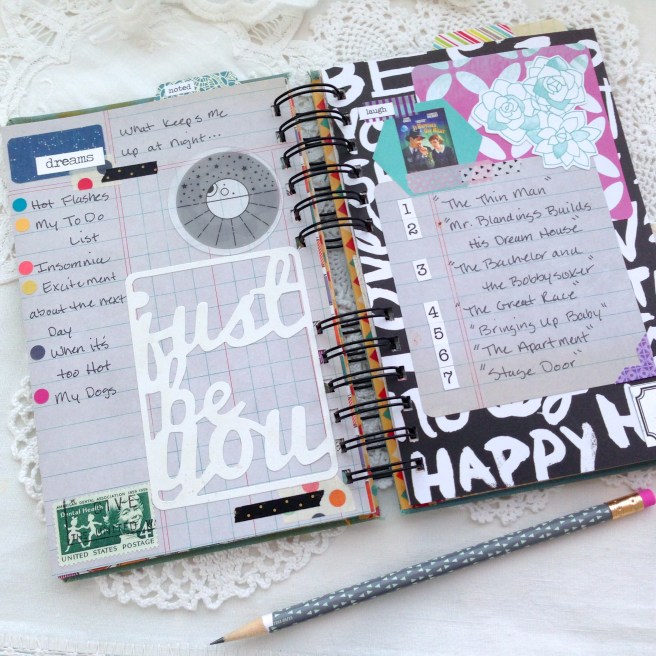 noted
dreams
What Keeps Me
Up at Night...
Hot Flashes
My To Do
List
Insomnia
Excitement
about the next
Day
When it's
too Hot
My Dogs
just
be
you
AMERICAN DENTAL ASSOCIATION 1859 1959
Dental Health
UNITED STATES POSTAGE
BE
laugh
LOVE
1 "The Thin Man"
2 "Mr. Blandings Builds
His Dream House"
3 "The Bachelor and
the Bobbysoxer"
4 "The Great Race"
5 "Bringing Up Baby"
6 "The Apartment"
7 "Stage Door"
HAPPY H